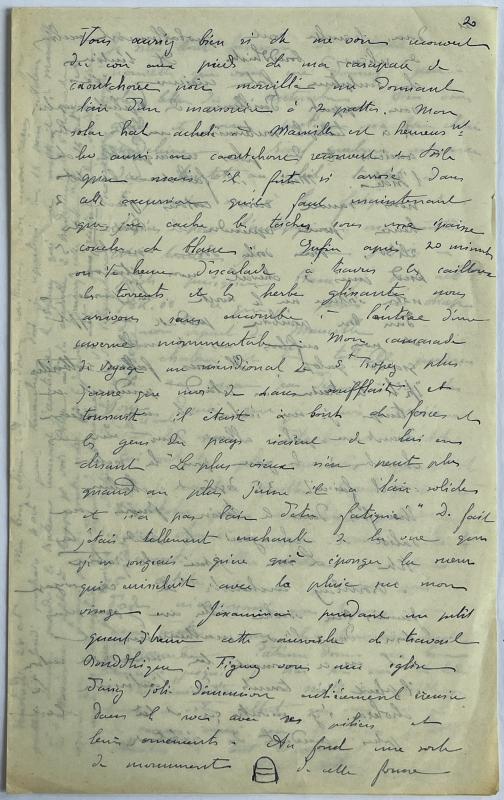 20
Vous auriez bien ri de me voir recouvert
du cou aux pieds de ma carapace de
caoutchouc noir mouillé me donnant
l'air d'un marsouin à 2 pattes. Mon
solar hat acheté à Marseille est heureust
lui aussi en caoutchouc recouvert de toile
grise mais il fut si arrosé dans
cette excursion qu'il faut maintenant
que j'en cache les taches sous une épaisse
couche de blanc. Enfin après 20 minutes
ou 1/2 heure d'escalade à travers les cailloux
les torrents et les herbes glissantes nous
arrivons sans encombre à l'entrée d'une
caverne monumentale. Mon camarade
de voyage un méridional de St Tropez plus
jeune que moi de 4 ans soufflait et
toussait il était à bout de forces et
les gens du pays riaient de lui en
disant "Le plus vieux n'en peut plus
quand au plus jeune il a l'air solide
et n'a pas l'air d'être fatigué" De fait
j'étais tellement enchanté de la vue que
je ne songeais guère qu'à éponger la sueur
qui ruisselait avec la pluie sur mon
visage. J'examinai pendant un petit
quart d'heure cette merveille de travail
Bouddhique. Figurez vous une église
d'assez jolie dimension entièrement creusée
dans le roc avec ses piliers et
leurs ornements. Au fond une sorte
de monument de cette forme